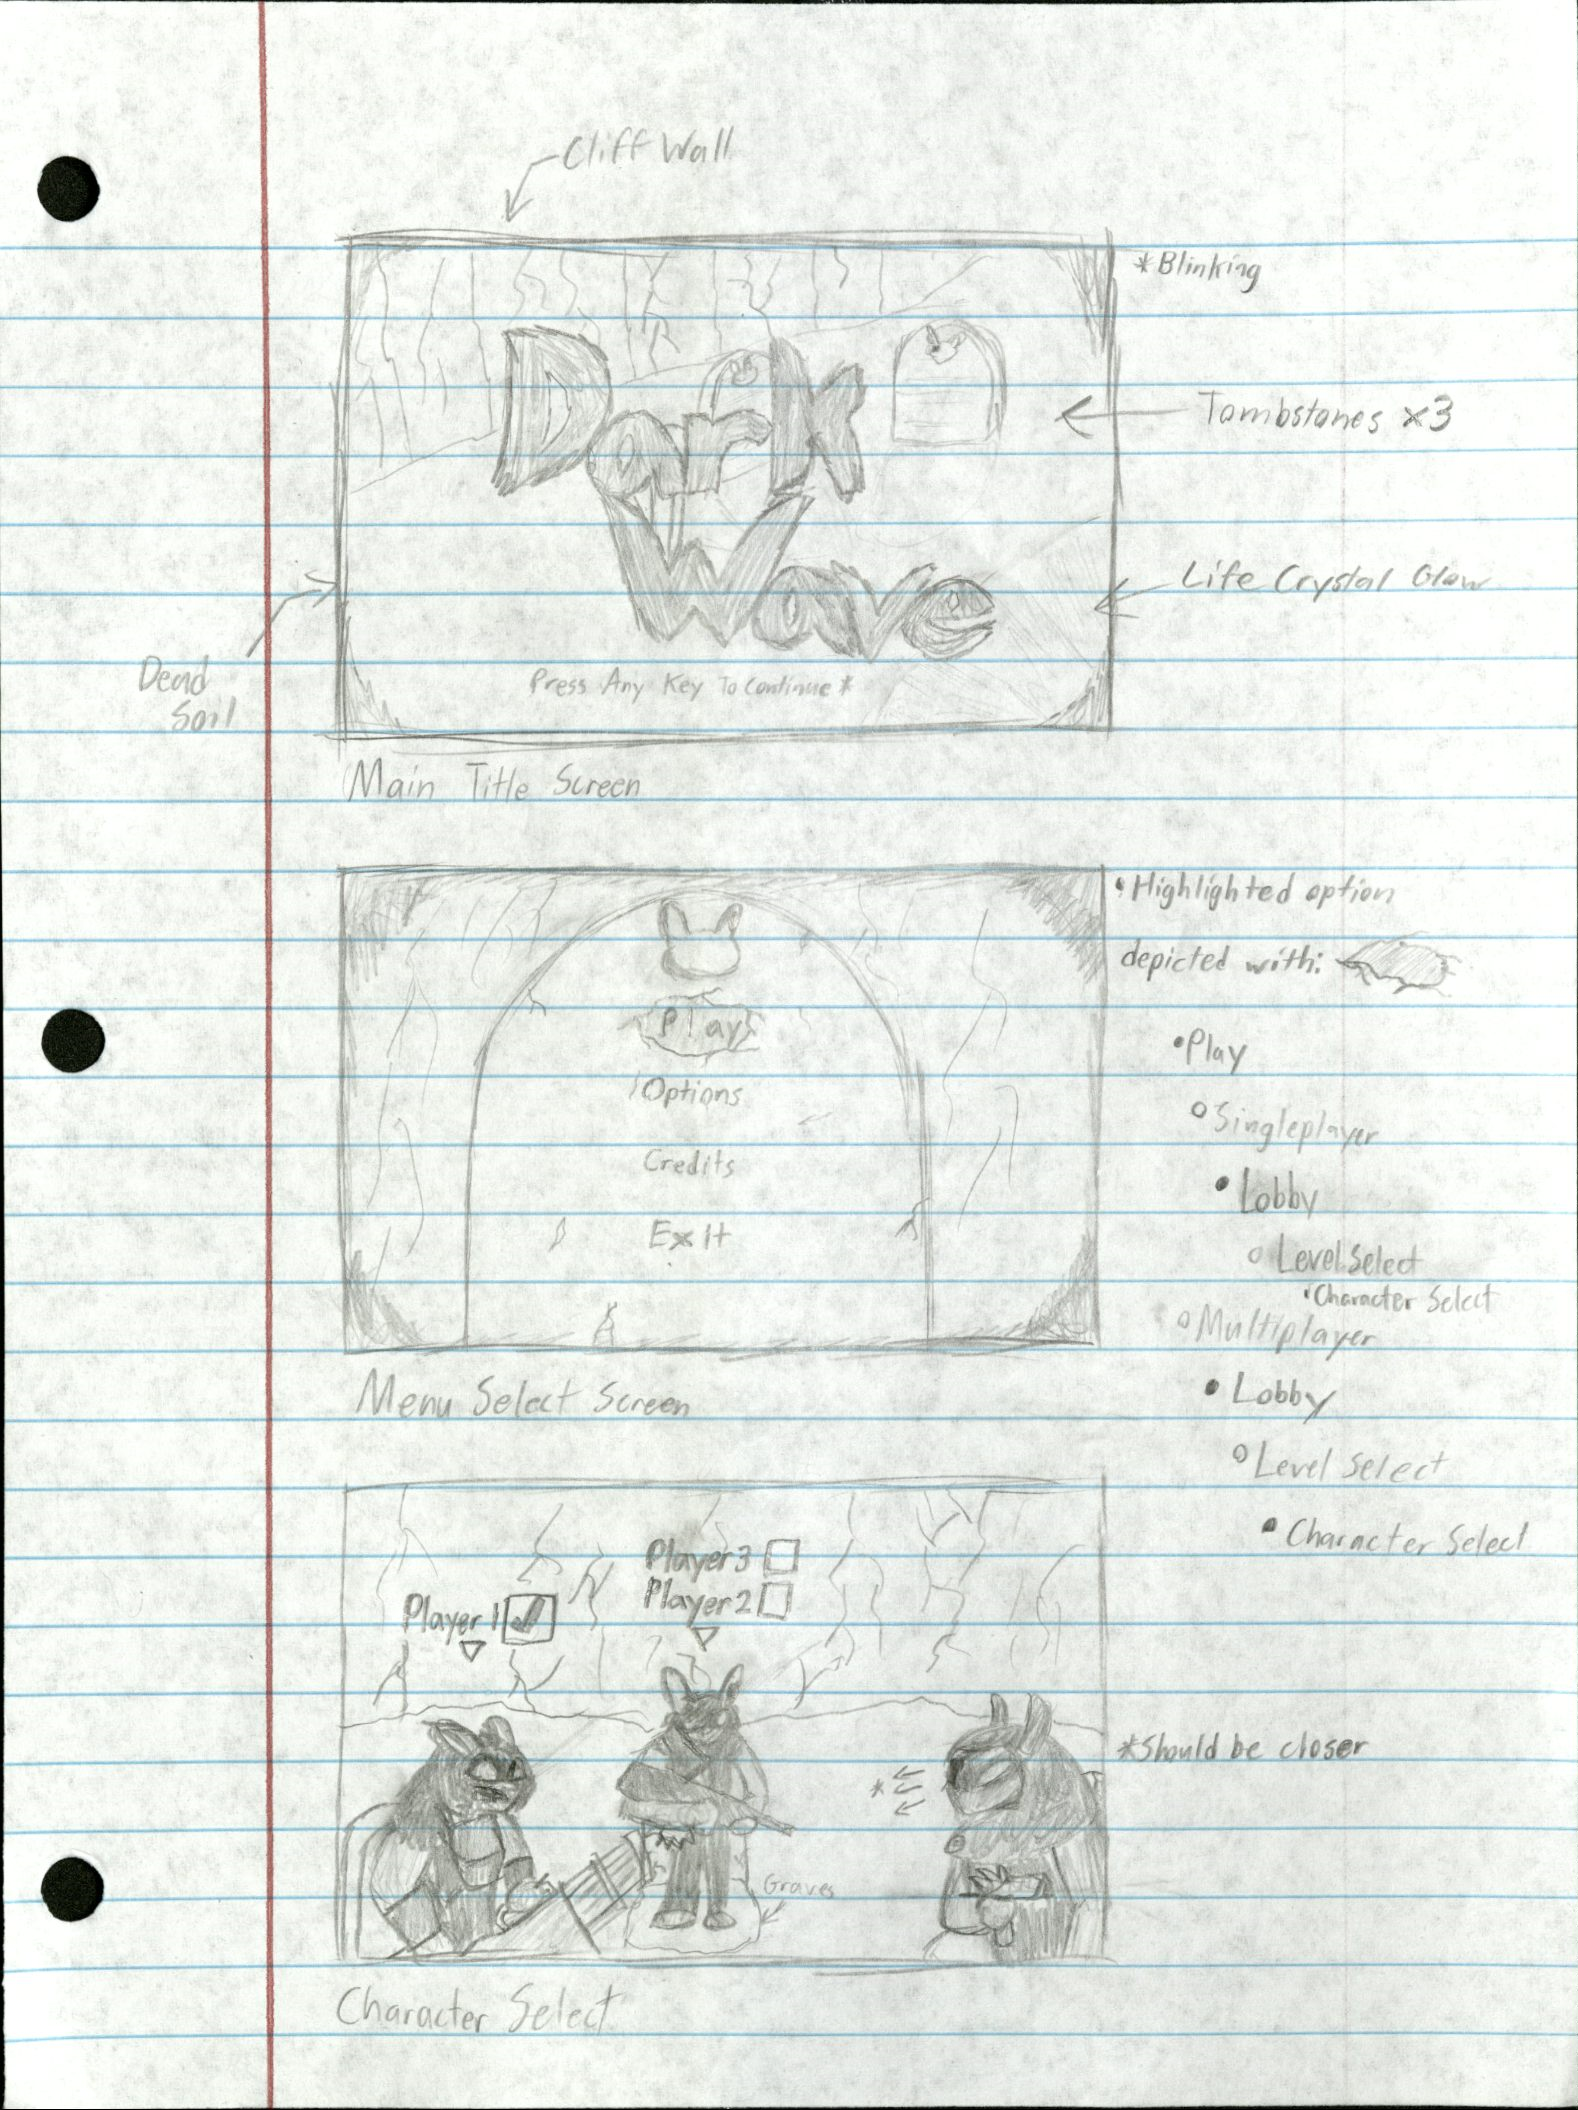 Cliff Wall
*Blinking
Dark
Tombstones x3
Wave
Life Crystal Glow
Dead
Soil
Press Any Key To Continue *
Main Title Screen
• Highlighted option
depicted with:
Play
Options
Credits
Exit
• Play
○ Singleplayer
• Lobby
○ Level Select
• Character Select
○ Multiplayer
• Lobby
○ Level Select
• Character Select
Menu Select Screen
Player 3
Player 2
Player 1
*Should be closer
*
Graves
Character Select